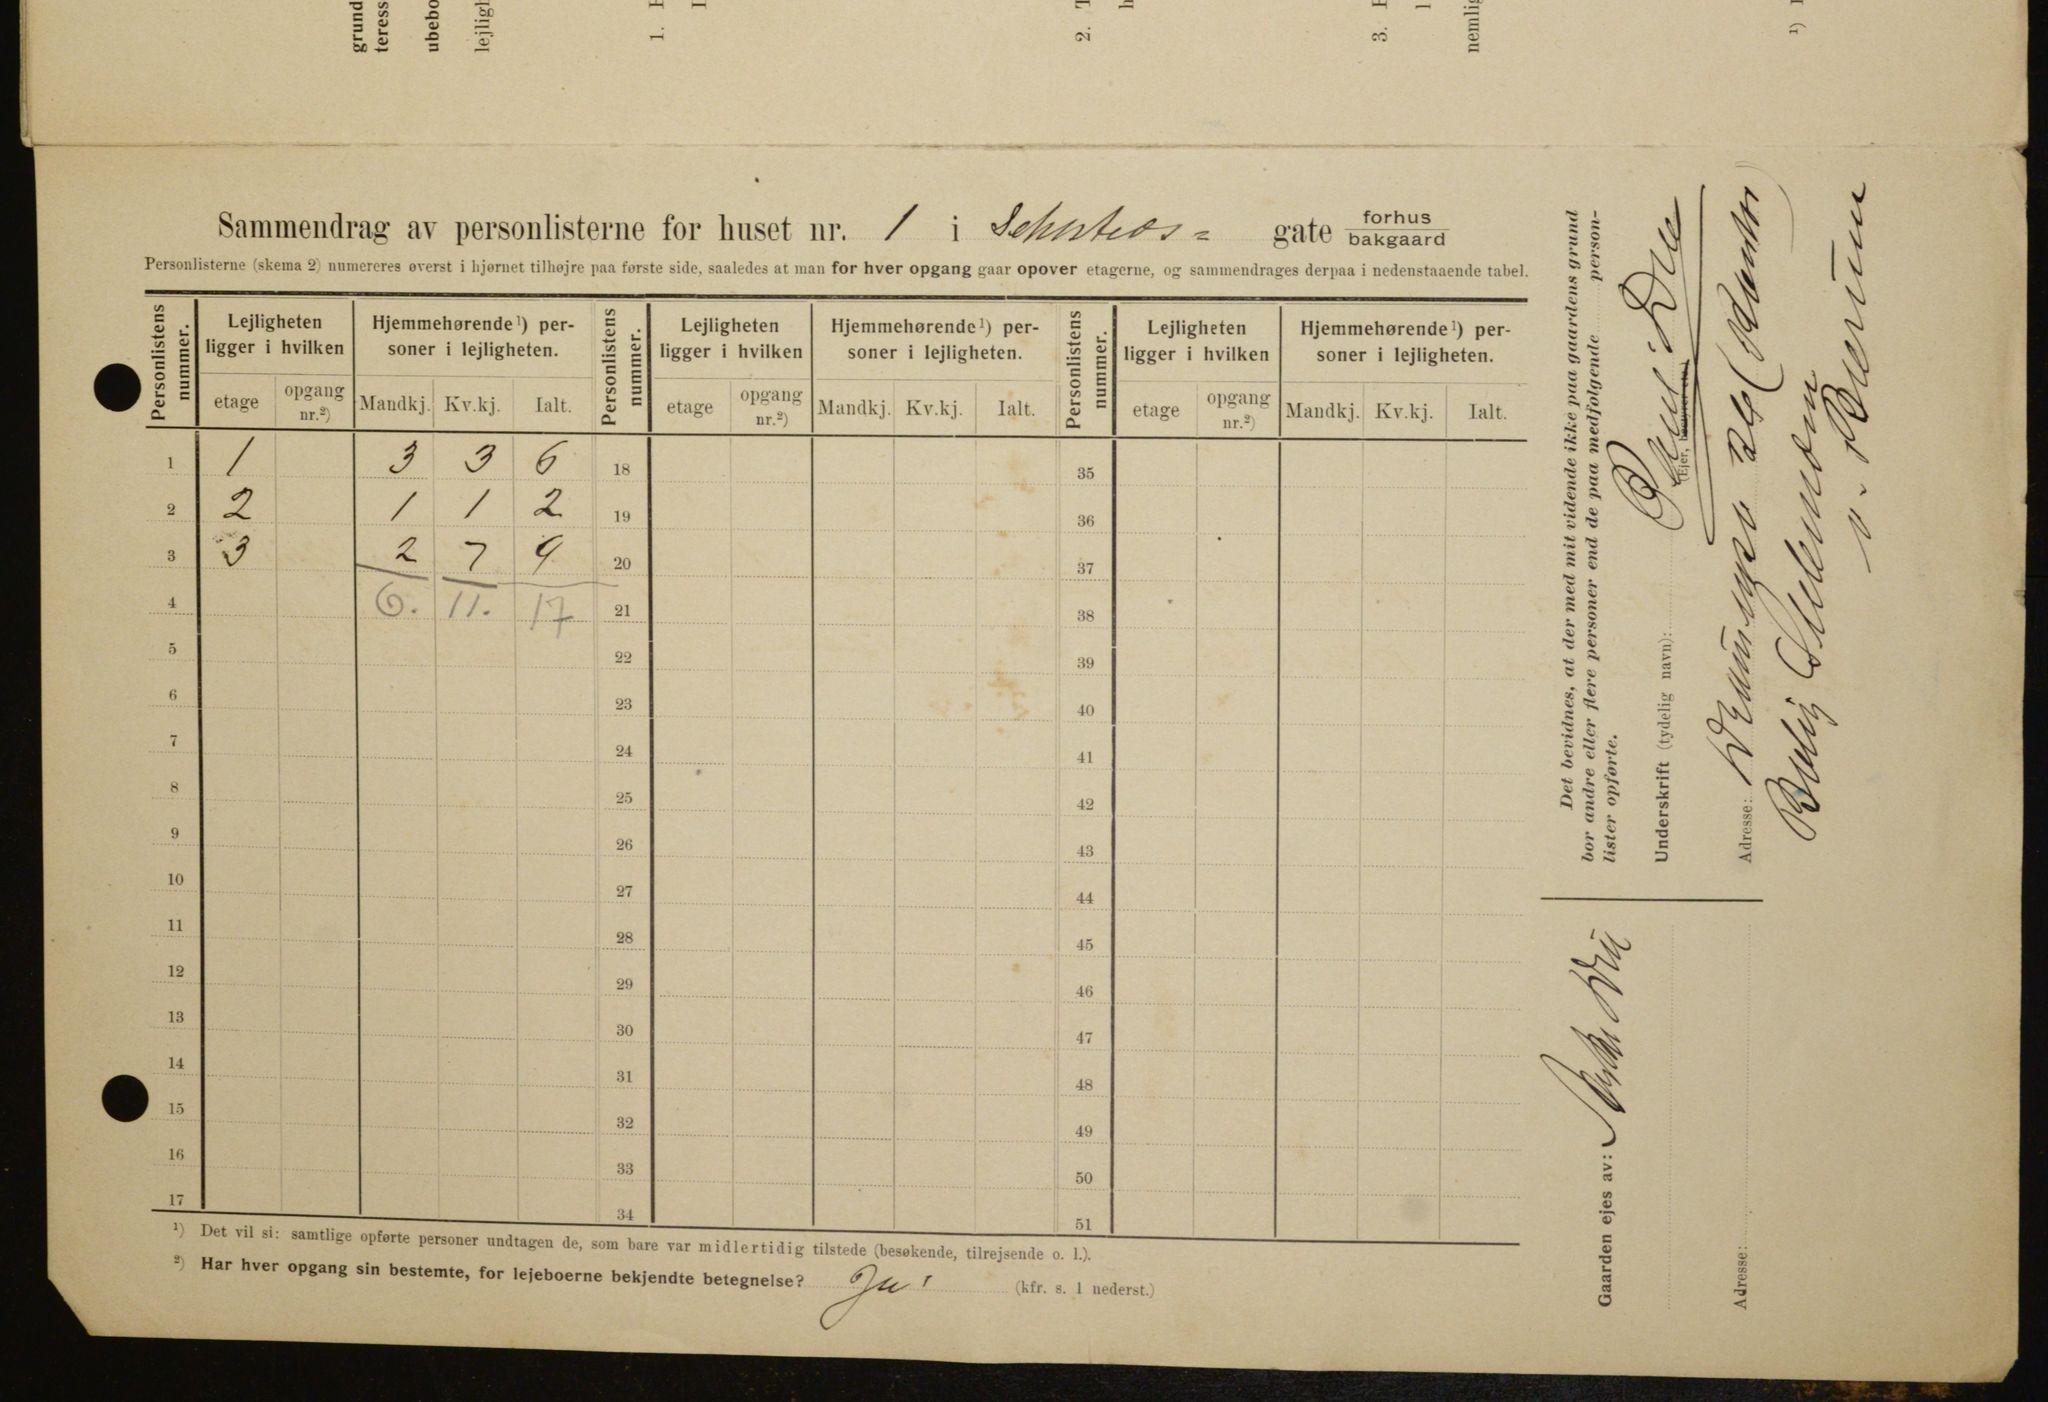 grund
teress
ubebo
lejligh
1.
2.
3.
nemlig
1)
Sammendrag av personlisterne for huset nr. 1 i Schultes- gate forhus bakgaard
Personlisterne (skema 2) numereres øverst i hjørnet tilhøjre paa første side, saaledes at man for hver opgang gaar opover etagerne, og sammendrages derpaa i nedenstaaende tabel.
Personlistens nummer. Lejligheten ligger i hvilken Hjemmehørende 1) personer i lejligheten. Personlistens nummer. Lejligheten ligger i hvilken Hjemmehørende 1) personer i lejligheten. Personlistens nummer. Lejligheten ligger i hvilken Hjemmehørende 1) personer i lejligheten.
etage opgang nr.2) Mandkj. Kv.kj. Ialt. etage opgang nr.2) Mandkj. Kv.kj. Ialt. etage opgang nr.2) Mandkj. Kv.kj. Ialt.
1 1 3 3 6 18 35
2 2 1 1 2 19 36
3 3 2 7 9 20 37
4 6. 11. 17 21 38
5 22 39
6 23 40
7 24 41
8 25 42
9 26 43
10 27 44
11 28 45
12 29 46
13 30 47
14 31 48
15 32 49
16 33 50
17 34 51
1) Det vil si: samtlige opførte personer undtagen de, som bare var midlertidig tilstede (besøkende, tilrejsende o. l.).
2) Har hver opgang sin bestemte, for lejeboerne bekjendte betegnelse? Ja (kfr. s. 1 nederst.)
Det bevidnes, at der med mit vidende ikke paa gaardens grund
bor andre eller flere personer end de paa medfølgende person-
lister opførte.
Underskrift (tydelig navn): Paul Due
Adresse:
v. Bærum
Gaarden ejes av: Due
Adresse: